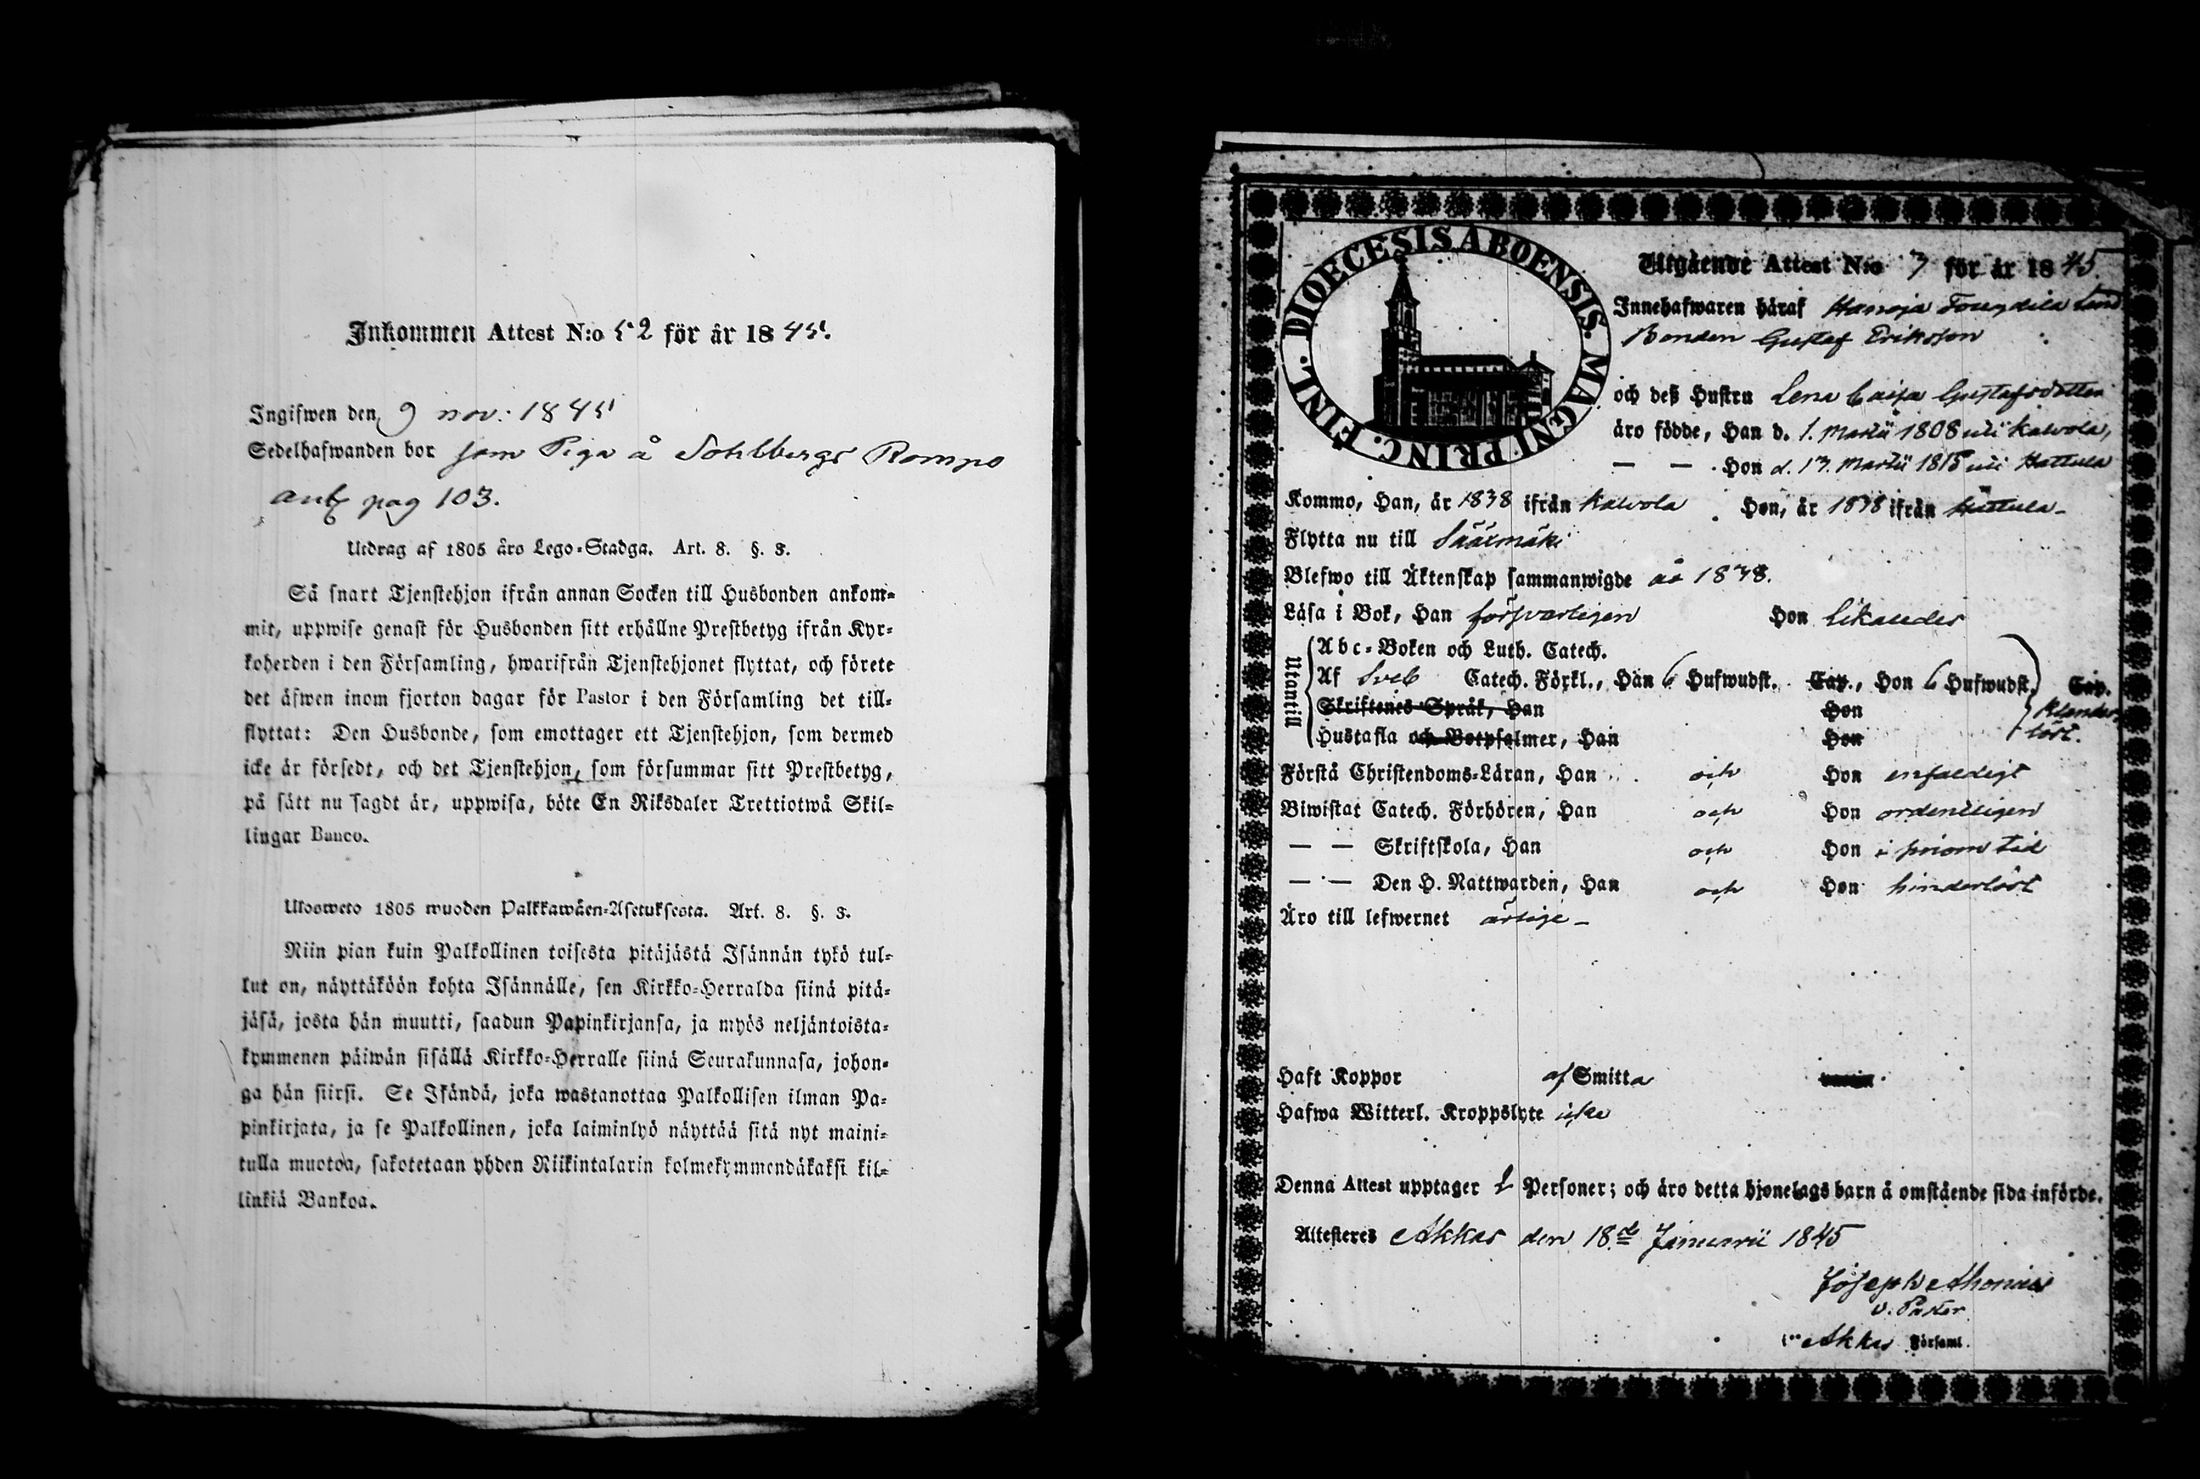 Inkommen Attest N:o 52 för år 1845.
Ingifwen den 9 nov: 1845
Sedelhafwanden bor som Piga å Sohlbergs Rompo
ant pag 103.
Utdrag af 1805 års Lego-Stadga. Art. 8. §. 3.
Så snart Tjenstehjon ifrån annan Socken till Husbonden ankom-
mit, uppwise genast för Husbonden sitt erhållne Prestbetyg ifrån Kyr-
koherden i den Församling, hwarifrån Tjenstehjonet flyttat, och förete
det äfwen inom fjorton dagar för Pastor i den Församling det till-
flyttat: Den Husbonde, som emottager ett Tjenstehjon, som dermed
icke är försedt, och det Tjenstehjon, som försummar sitt Prestbetyg,
på sätt nu sagdt är, uppwisa, böte En Riksdaler Trettiotwå Skil-
lingar Banco.
Ulosweto 1805 wuoden Palkkawäen-Asetuksesta. Art. 8. §. 3.
Niin pian kuin Palkollinen toisesta pitäjästä Isännän tykö tul-
lut on, näyttäköön kohta Isännälle, sen Kirkko-Herralda siinä pitä-
jäsä, josta hän muutti, saadun Papinkirjansa, ja myös neljäntoista-
kymmenen päiwän sisällä Kirkko-Herralle siinä Seurakunnasa, johon-
ga hän siirsi. Se Isändä, joka wastanottaa Palkollisen ilman Pa-
pinkirjata, ja se Palkollinen, joka laiminlyö näyttää sitä nyt maini-
tulla muotoa, sakotetaan yhden Riikintalarin kolmekymmendäkaksi kil-
linkiä Bankoa.
FINL. DIOECESIS ABOENSIS. MAGNI PRINC.
Utgående Attest N:o 7 för år 1845
Innehafwaren häraf
Bonden Gustaf Eriksson
och deß Hustru Lena Caisa Gustafsdotter
äro födde, Han d. 1. Martii 1808 uti Kalvola,
— — Hon d. 17. Martii 1815 uti Hattula
Kommo, Han, år 1838 ifrån Kalvola. Hon, år 1838 ifrån Hattula-
Flytta nu till Sääxmäki
Blefwo till Äktenskap sammanwigde år 1838.
Läsa i Bok, Han försvarligen Hon likaledes
Utantill
Abc-Boken och Luth. Catech.
Af Sveb Catech. Förkl., Han 6 Hufwudst. Cap., Hon 6 Hufwudst. Cap.
Skriftenes Språk, Han Hon Klander
Hustafla och Botpsalmer, Han Hon löst.
Förstå Christendoms-Läran, Han och Hon enfaldigt
Biwistat Catech. Förhören, Han och Hon ordentligen
— — Skriftskola, Han och Hon i sinom tid
— — Den H. Nattwarden, Han och Hon hinderlöst
Äro till lefwernet ärlige-
Haft Koppor af Smitta
Hafwa Witterl. Kroppslyte icke
Denna Attest upptager 2 Personer; och äro detta hjonelags barn å omstående sida införde.
Attesteres Akkas den 18de Januarii 1845
Joseph
v. Pastor
i Akkas Församl.